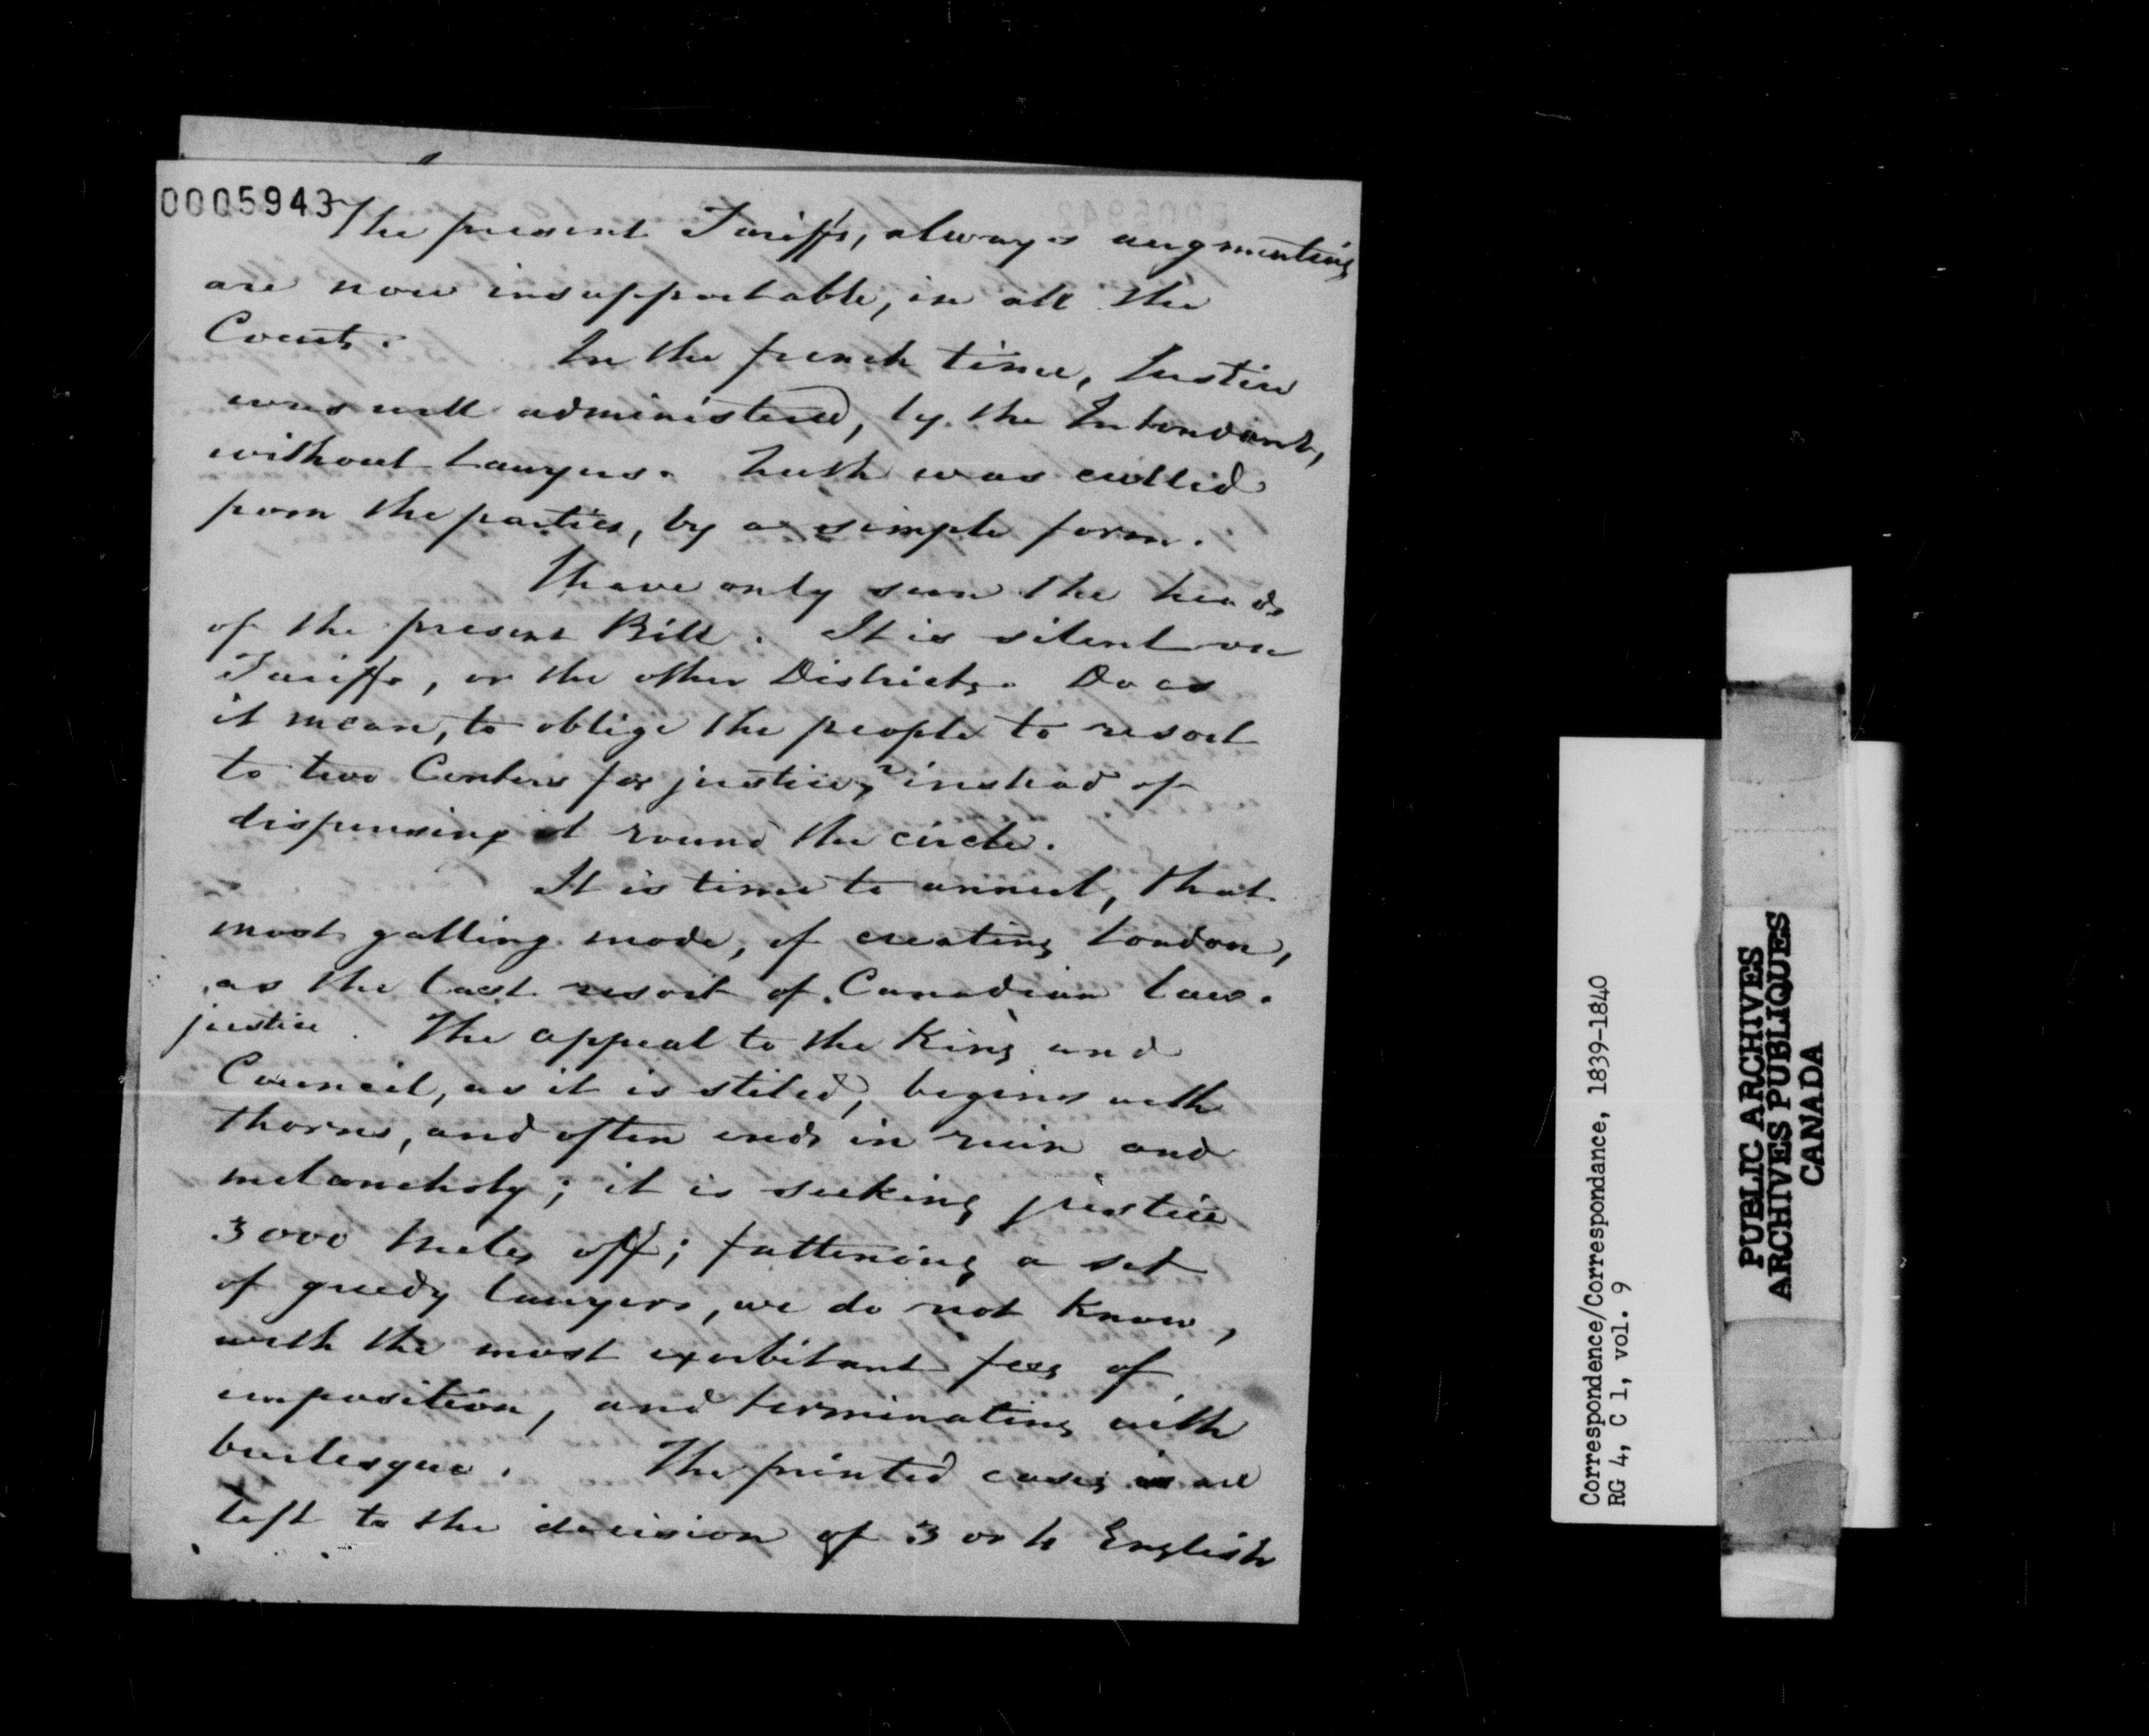 0005943
The present Tariffs, always augmenting
are now insupportable, in all the
Courts. In the french time, Justice
was well administered, by the Intendant,
without Lawyers. Truth was culled
from the parties, by a simple form.
I have only seen the heads
of the present Bill. It is silent on
Tariffs, or the other Districts. Does
it mean, to oblige the people to resort
to two Centers for justice, instead of
dispensing it round the circle.
It is time to annul, that
most galling mode, of creating London,
as the last resort of Canadian law.
justice. The appeal to the King and
Council, as it is stiled, begins with
thorns, and often ends in ruin and
melancholy; it is seeking justice
3000 Miles off; fattening a set
of greedy lawyers, we do not know,
with the most exorbitant fees of
imposition, and terminating with
burlesque. The printed cases are
left to the decision of 3 or 4 English
Correspondence/Correspondance, 1839-1840
RG 4, C 1, vol. 9
PUBLIC ARCHIVES
ARCHIVES PUBLIQUES
CANADA